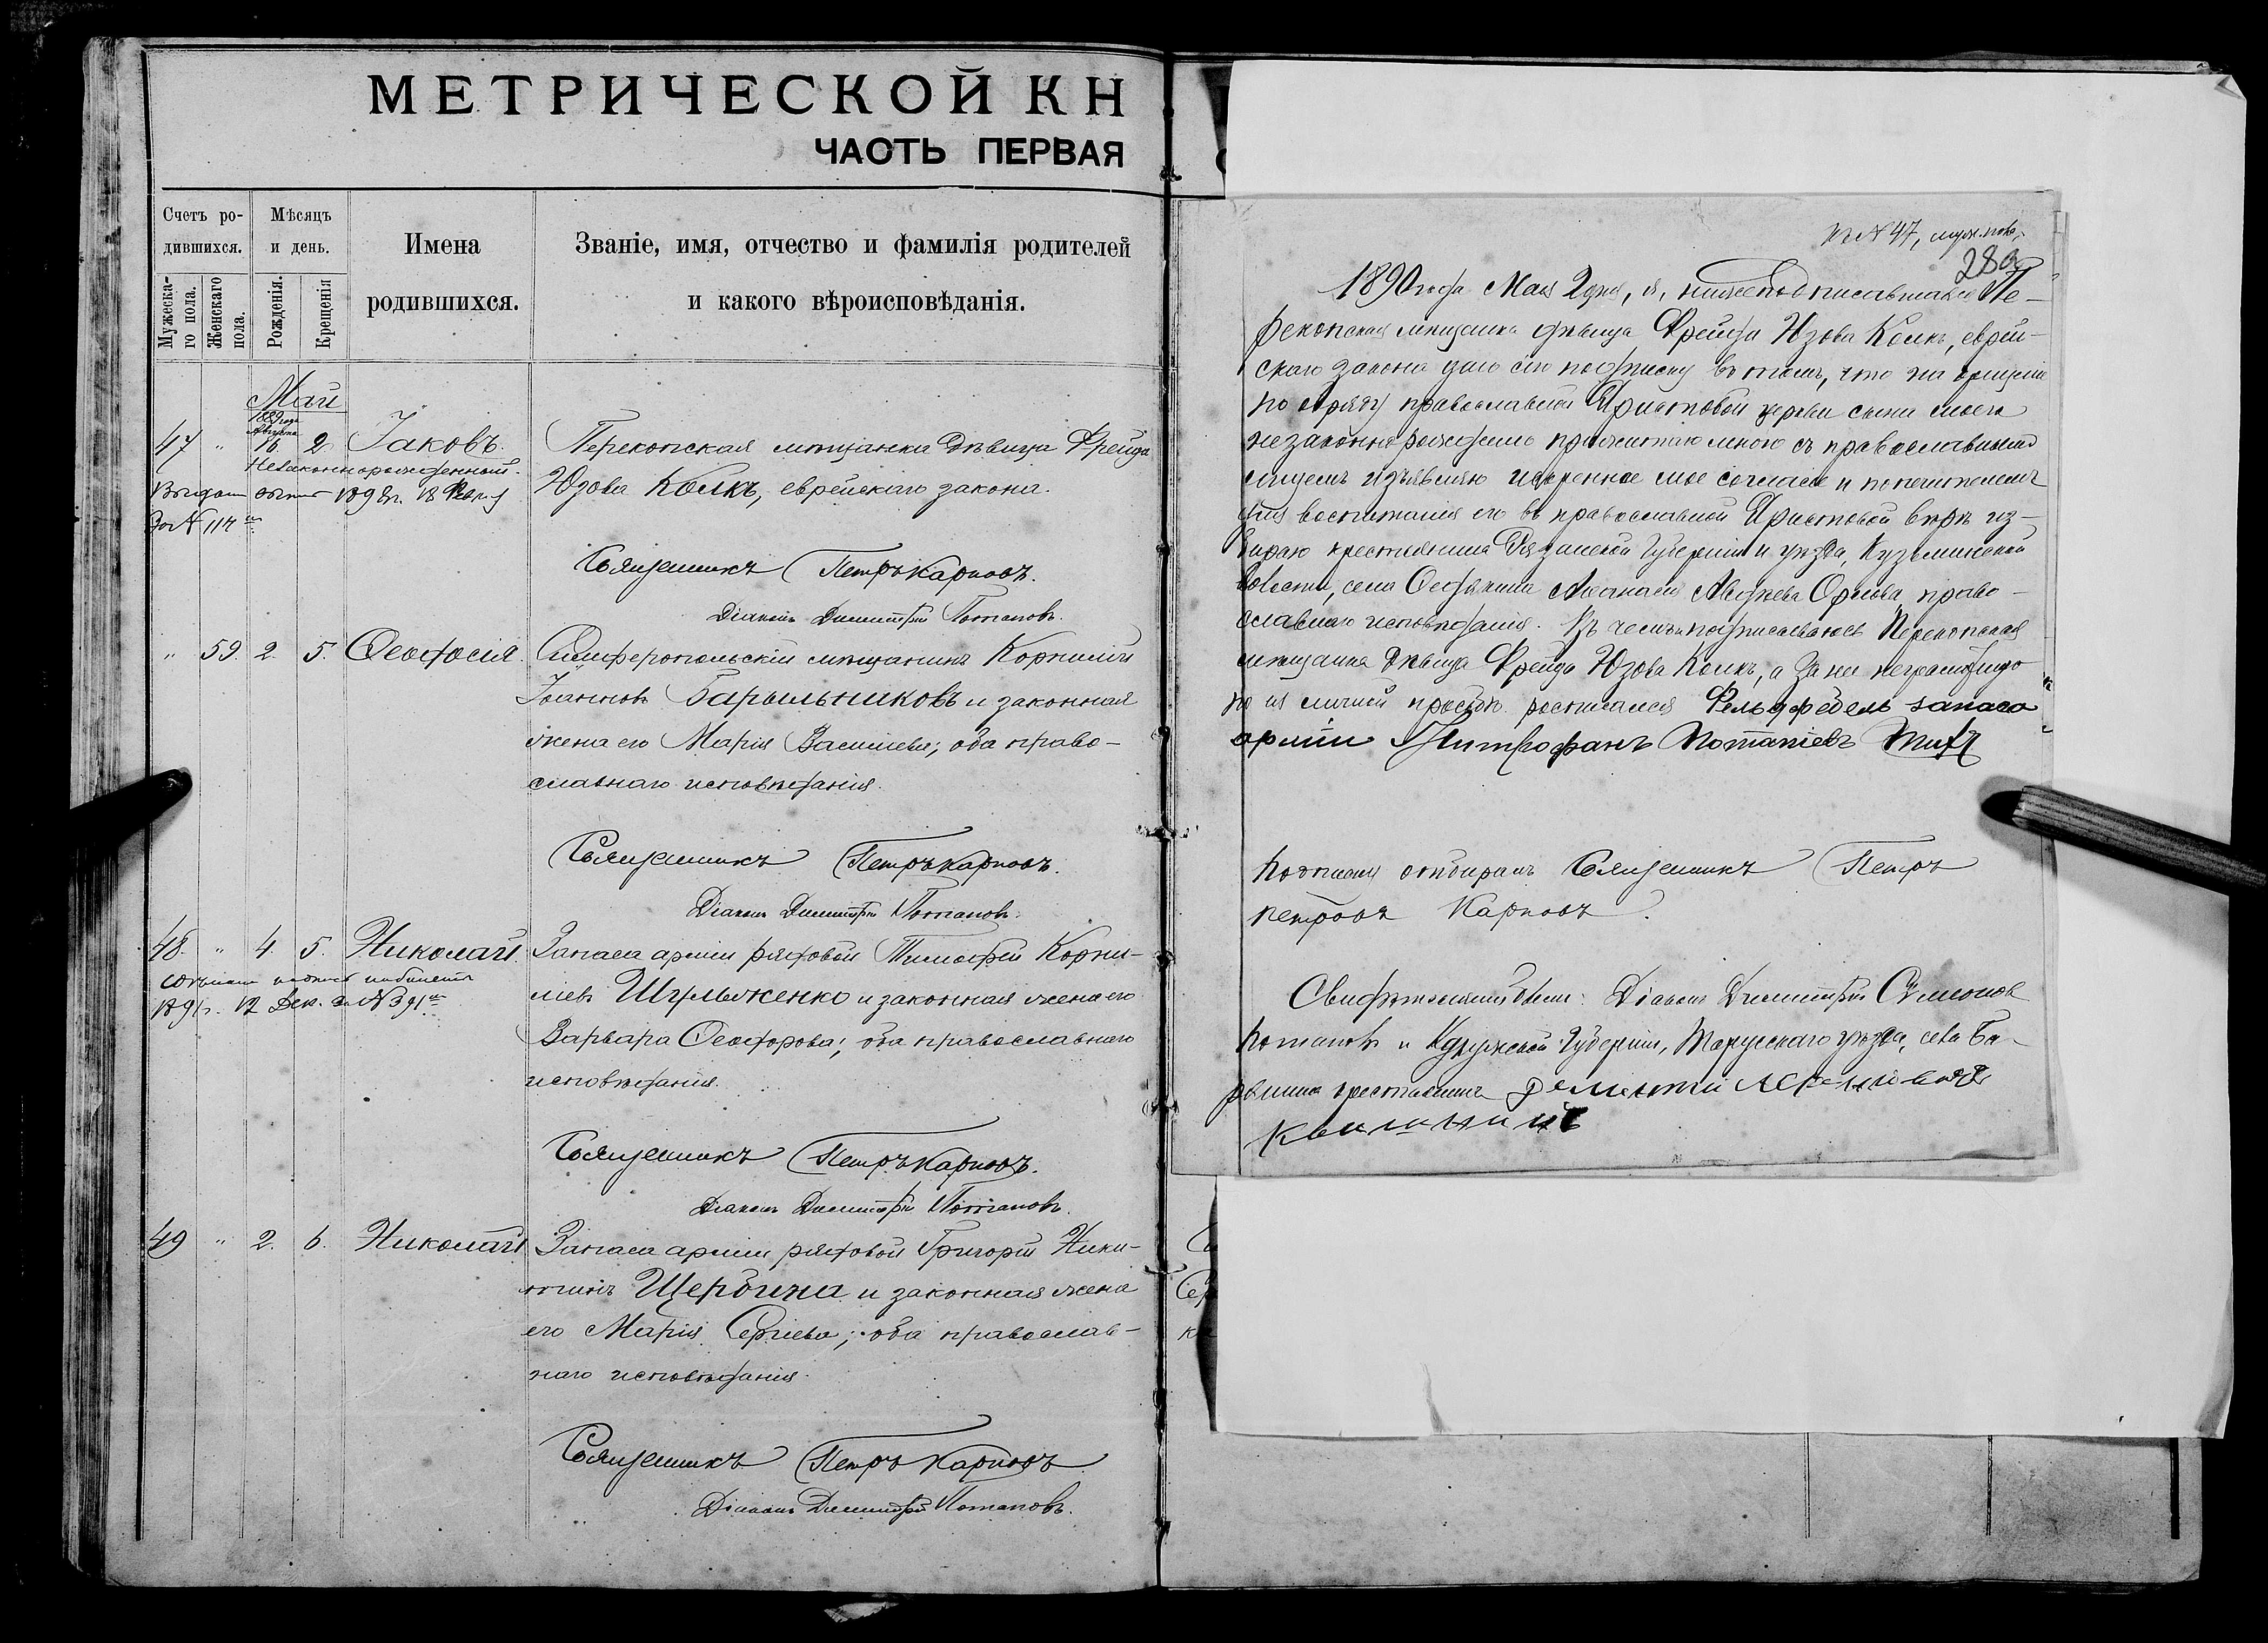 МЕТРИЧЕСКОЙ КН
ЧАСТЬ ПЕРВАЯ
Счетъ ро-
дившихся.
Мужеска-
го пола.
Женскаго
пола.
Мѣсяцъ
и день.
Рожденія.
Крещенія
Имена
родившихся.
Званіе, имя, отчество и фамилія родителей
и какого вѣроисповѣданія.
Май
1889 года
Августа
47 " 16. 2 Іаковъ. Перекопская мѣщанка дѣвица Фрейда
Незаконнорожденный.
Юзова Колкъ, еврейскаго закона.
За №
Священникъ Петръ Карповъ.
Діаконъ Димитрій Потаповъ.
" 59. 2. 5. Ѳеодосія. Симферопольскій мѣщанинъ Корнилій
Іоанновъ Барыльниковъ и законная
жена его Марія Васильева; оба право-
славнаго исповѣданія.
Священникъ Петръ Карповъ.
Діаконъ Димитрій Потаповъ.
48. " 4. 5. Николай. Запаса арміи рядовой Тимофей Корни-
ліевъ Шульженко и законная жена его
12 Дек. за № 391
Варвара Ѳеодорова; оба православнаго
исповѣданія.
Священникъ Петръ Карповъ.
Діаконъ Димитрій Потаповъ.
49 " 2. 6. Николай Запаса арміи рядовой Григорій Ники-
тинъ Щербина и законная жена
его Марія Сергіева; оба православ-
наго исповѣданія.
Священникъ Петръ Карповъ
Діаконъ Димитрій Потаповъ.
Къ № 47, муж. пола,
1890 года Мая 2 дня, я, нижеподписавшаяся Пе-
рекопская мѣщанка дѣвица Фрейда Юзова Колкъ, еврей-
скаго закона даю сію подписку въ томъ, что на крещеніе
по обряду православной Христовой церкви сына моего
незаконно рожденно прижитаго мною съ православнымъ
лицемъ изъявляю искреннее мое согласіе и попечителемъ
для воспитанія его въ православной Христовой вѣрѣ из-
бираю крестьянина Рязанской Губерніи и уѣзда, Кузьминской
Волости, села Ѳедякина Авдѣева Орлова, право-
славнаго исповѣданія. Въ чемъ и подписываюсь Перекопская
мѣщанка дѣвица Фрейда Юзова Колкъ, а за нее неграмотную
по ея личной просьбѣ росписался Фельдфебель запаса
арміи Митрофанъ
Подписку отбиралъ Священникъ Петръ
Петровъ Карповъ.
Свидѣтелями были: Діаконъ Димитрій Симеоновъ
Потаповъ и Калужской Губерніи, Тарусскаго уѣзда, села Ба-
рятина крестьянинъ